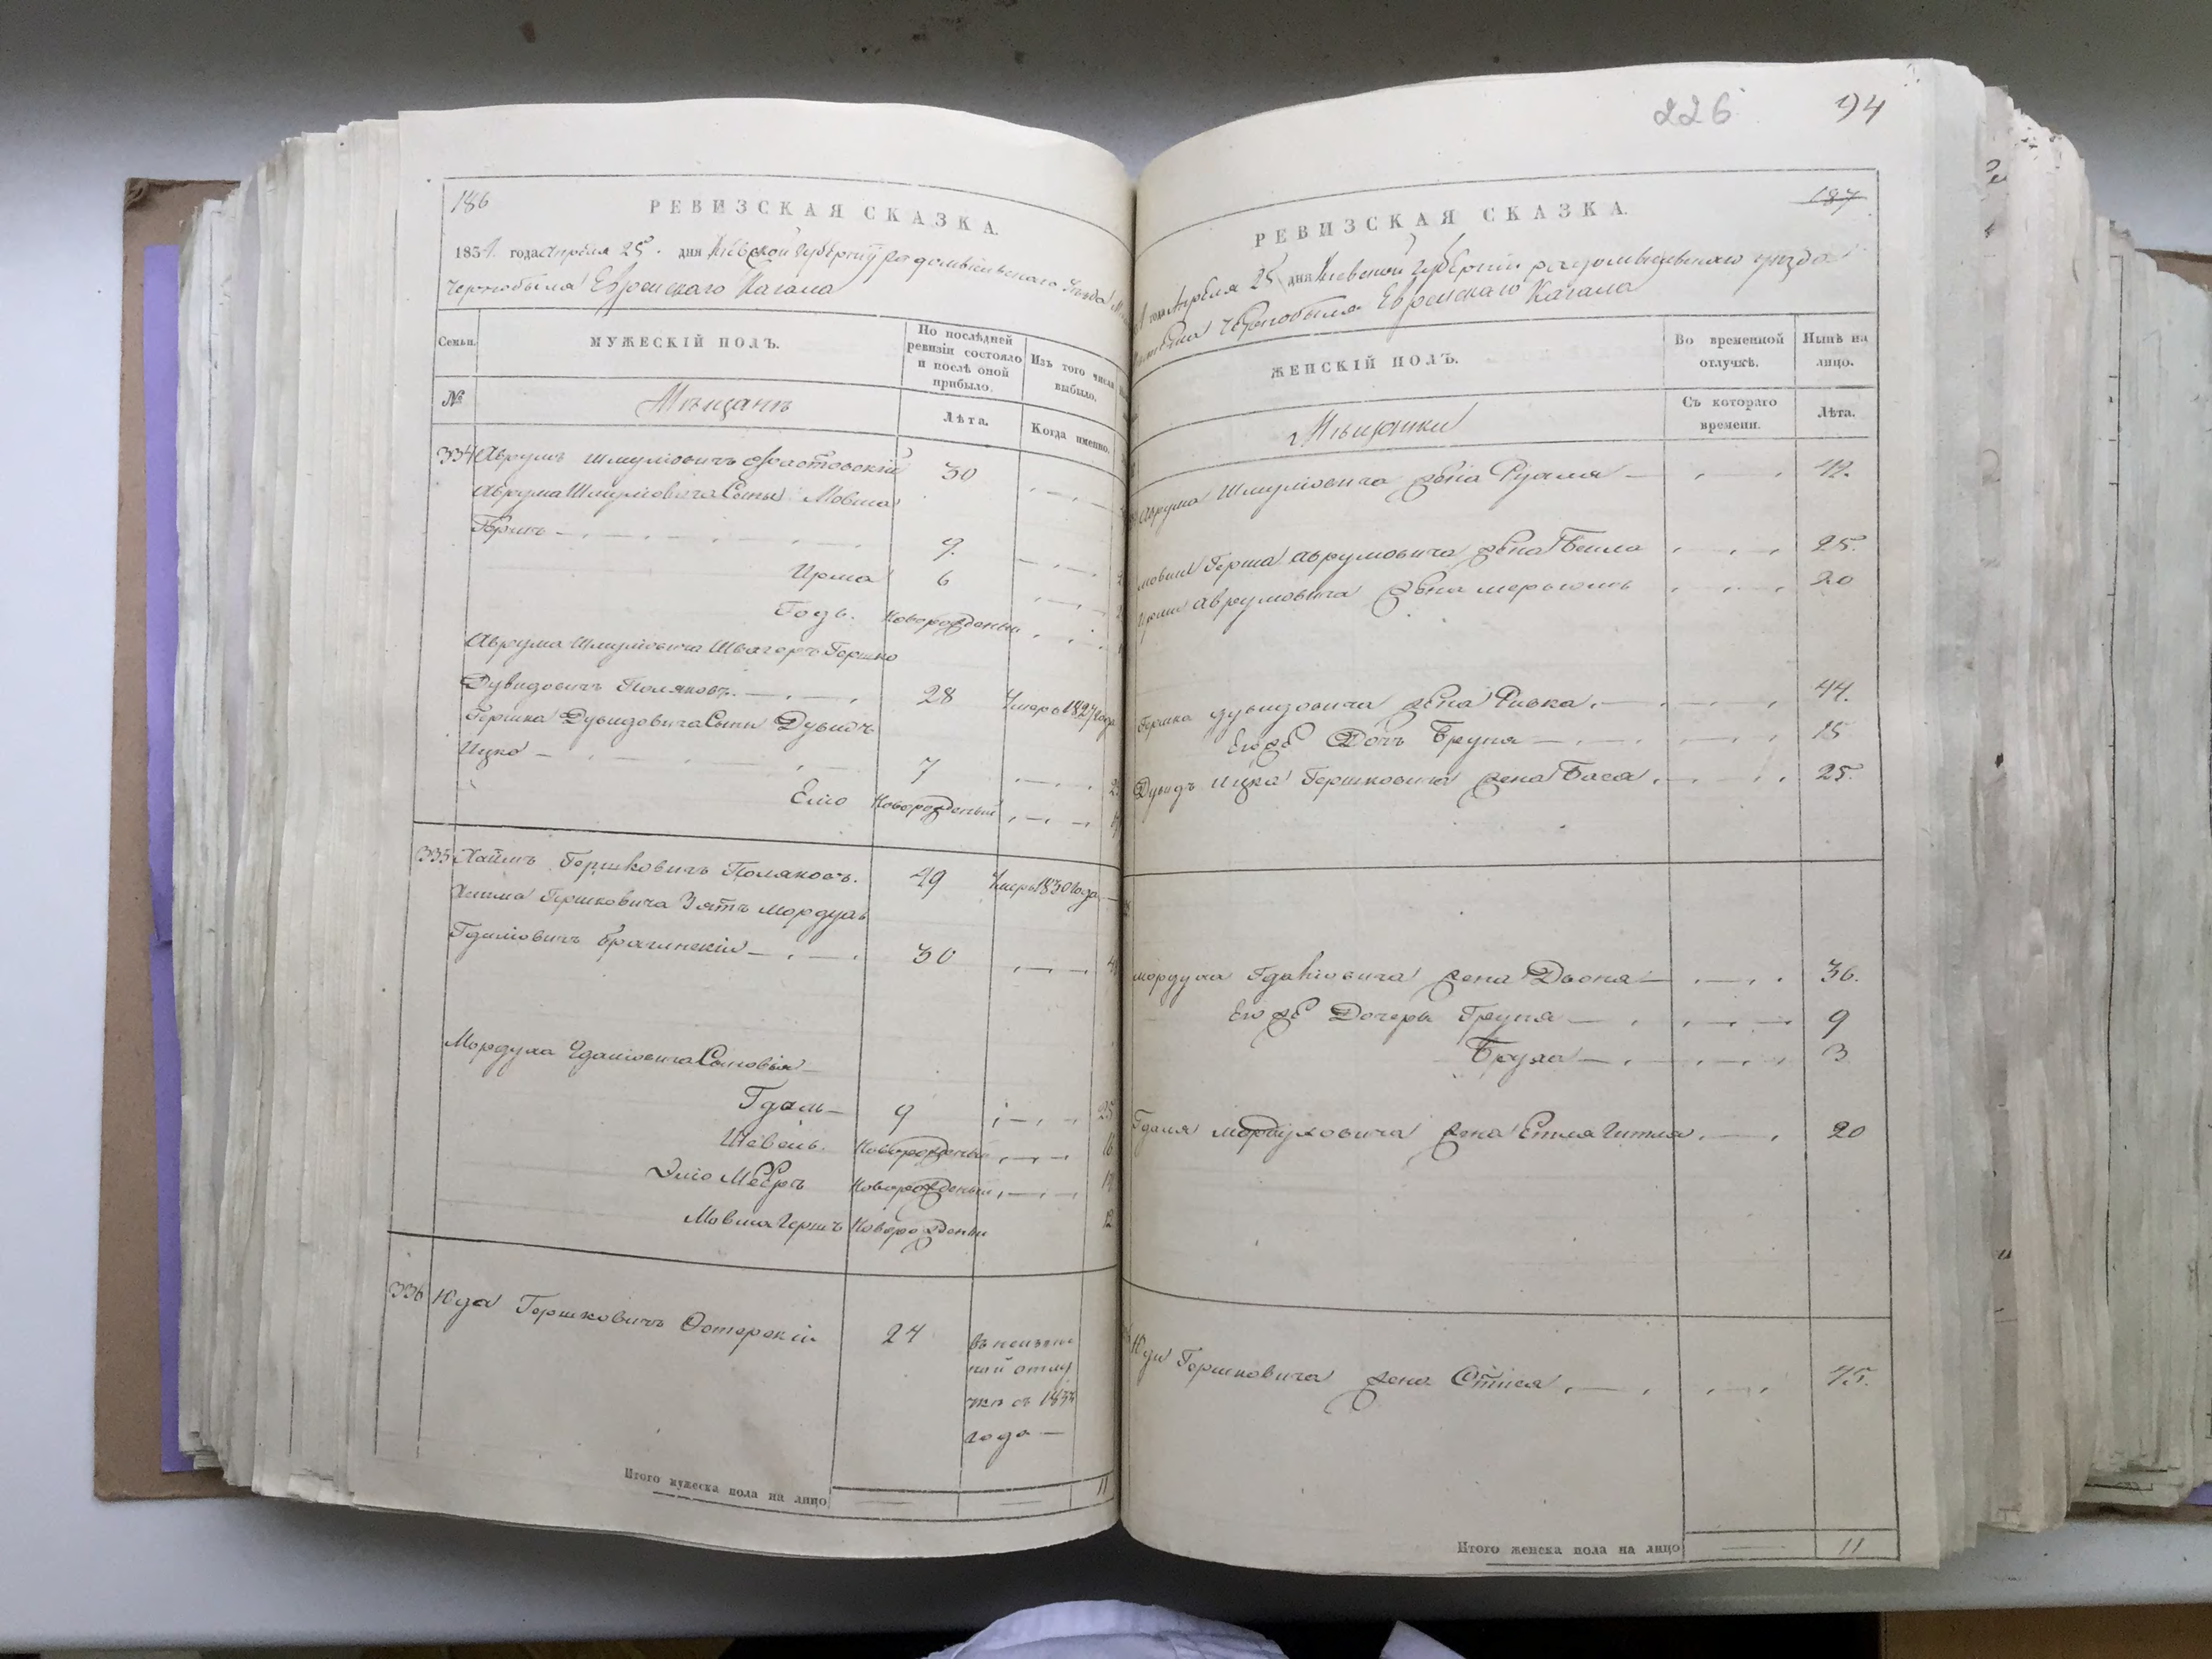 186
РЕВИЗСКАЯ СКАЗКА.
1834. года Апреля 25. дня Киевской Губернiи Радомысльского Уезда
Чернобыля Евройскаго Кагала
Семьи.
МУЖЕСКIЙ ПОЛЪ.
По послѣдней ревизiи состояло и послѣ оной прибыло.
Изъ того числа выбыло.
№
Мѣщанъ
Лѣта.
Когда именно.
334 Аврумъ Шмулiовичъ Фастовскiй 30
Аврума Шмулiовича Сыны Мовша
Гершъ 7.
Ирма 6
Годъ. Новорожденный
Аврума Шмулiовича Швагеръ Гершко
Дувидовичъ Поляковъ. 28 Умеръ 1827 года
Гершка Дувидовича Сыны Дувидъ
Ицко 7
Елiо Новорожденный
335 Хаимъ Гершковичъ Поляковъ. 49 Умеръ 1830 года
Хаима Гершковича Зять Мордухъ
Гдалiовичъ Брагинскiй 30
Мордуха Гдалiовича Сыновья
Гдаль 9 25
Шевель. Новорожденный 16
Элiо Мееръ Новорожденный
Мовша Гершъ Новорожденный 12
336 Юда Гершковичъ Остерскiй 24
въ
ной отлу
чкѣ съ
года
Итого мужеска пола на лицо 11
226 94
187
РЕВИЗСКАЯ СКАЗКА.
года Апреля 25 дня Киевской Губернiи Радомысльскаго уезда
Чернобыля Евройскаго Кагала
ЖЕНСКIЙ ПОЛЪ.
Во временной отлучкѣ.
Нынѣ на лицо.
Мѣщанки
Съ котораго времени.
Лѣта.
Аврума Шмулiовича жена Рухля 42.
Мовши Герша Аврумовича жена Бейла 25.
Ирмы Аврумовича жена Мерьямъ 20
Гершка Дувидовича жена Ривка. 44.
Его же Дочь Бруня 15
Дувидъ Ицка Гершковича жена Бася. 25.
Мордуха Гдалiовича жена Двоня 36.
Его же Дочеры Груня 9
Бруха 3
Гдаля Мордуховича жена Етля Гитля. 20
Юды Гершковича жена 45.
Итого женска пола на лицо 11